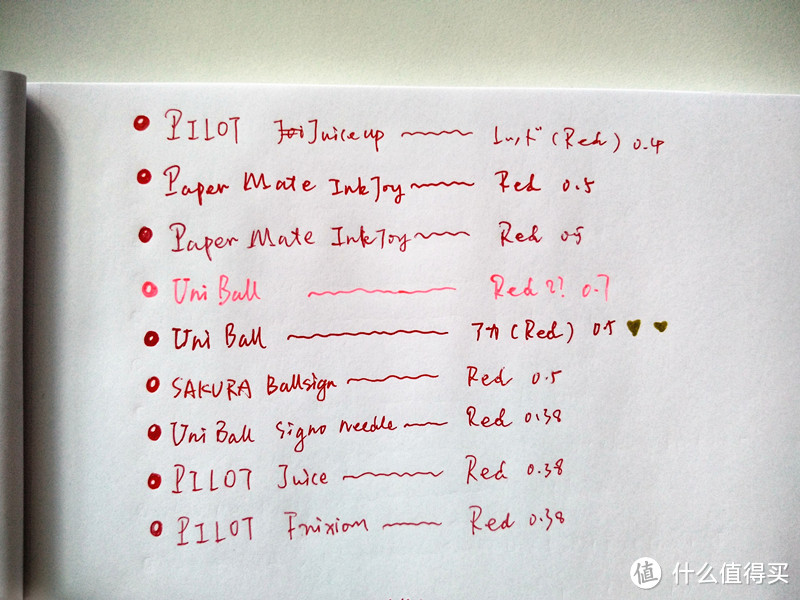 PILOT Juice up レッド (Red) 0.4
Paper Mate InkJoy Red 0.5
Paper Mate InkJoy Red 0.5
Uni Ball Red ?? 0.7
Uni Ball アカ (Red) 0.5
SAKURA Ballsign Red 0.5
Uni Ball Signo needle Red 0.38
PILOT Juice Red 0.38
PILOT Frixion Red 0.38
值 什么值得买